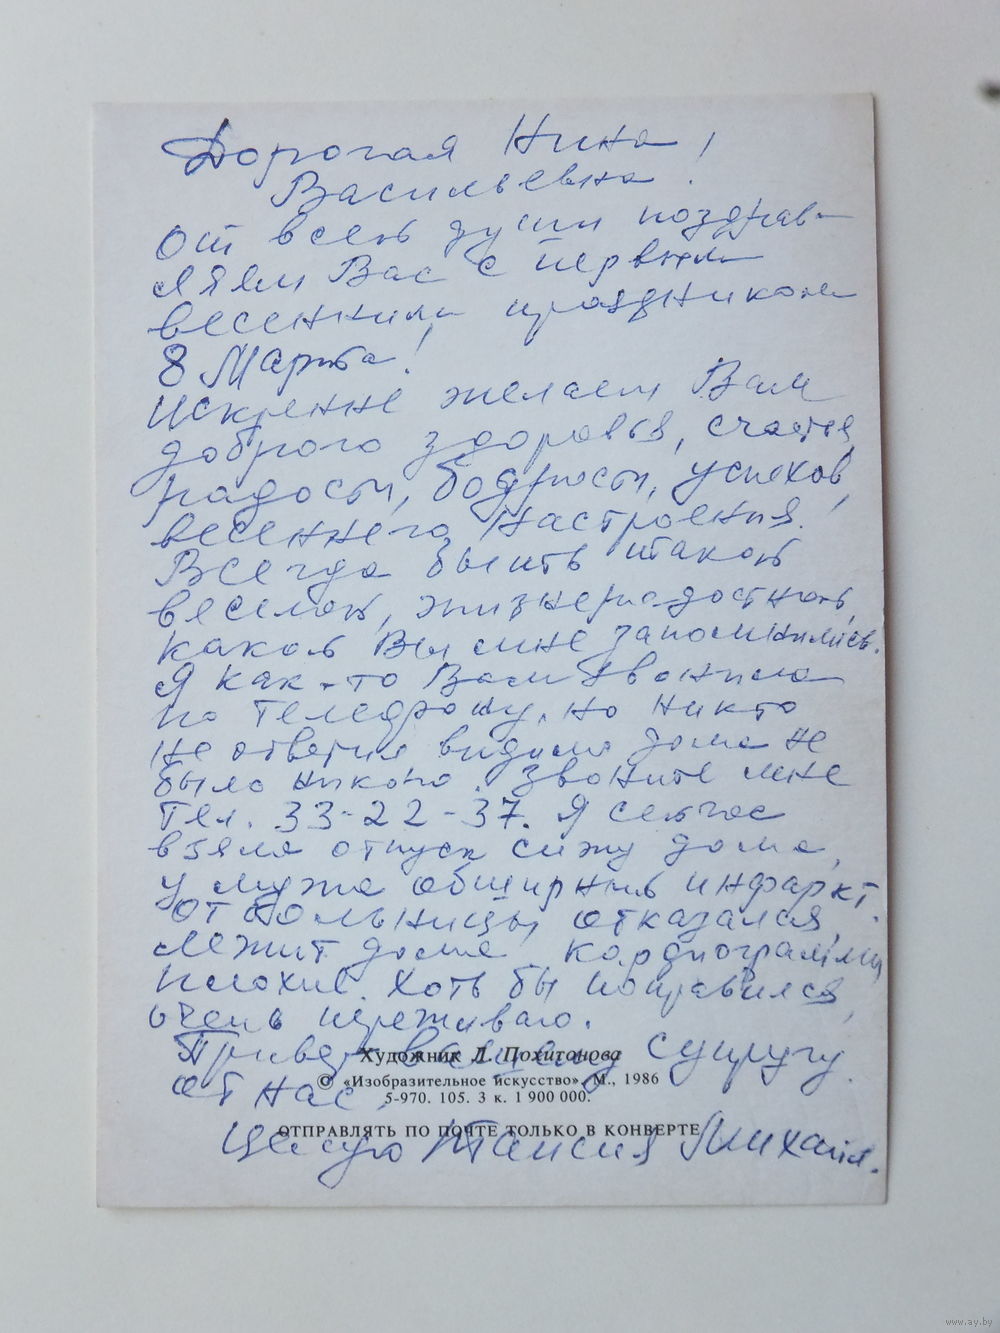 Дорогая Нина
Васильевна!
От всей души поздрав-
ляем Вас с первым
весенним праздником
8 Марта!
Искренне желаем Вам
доброго здоровья, счастья,
радости, бодрости, успехов,
весеннего настроения.
Всегда быть такой
веселой, жизнерадостной,
какой Вы мне запомнились.
Я как-то Вам звонила
по телефону, но никто
не ответил видимо дома не
было никого. Звоните мне
Тел. 33-22-37. Я сейчас
взяла отпуск сижу дома,
у мужа обширный инфаркт.
от больницы отказался,
лежит дома, кардиограммы
плохие. Хоть бы поправился,
очень переживаю.
Привет Вашему супругу
Художник Л. Похитонова
от нас.
© «Изобразительное искусство». М., 1986
5-970. 105. 3 к. 1 900 000.
ОТПРАВЛЯТЬ ПО ПОЧТЕ ТОЛЬКО В КОНВЕРТЕ
Целую Таисия Михайл.
www.ay.by